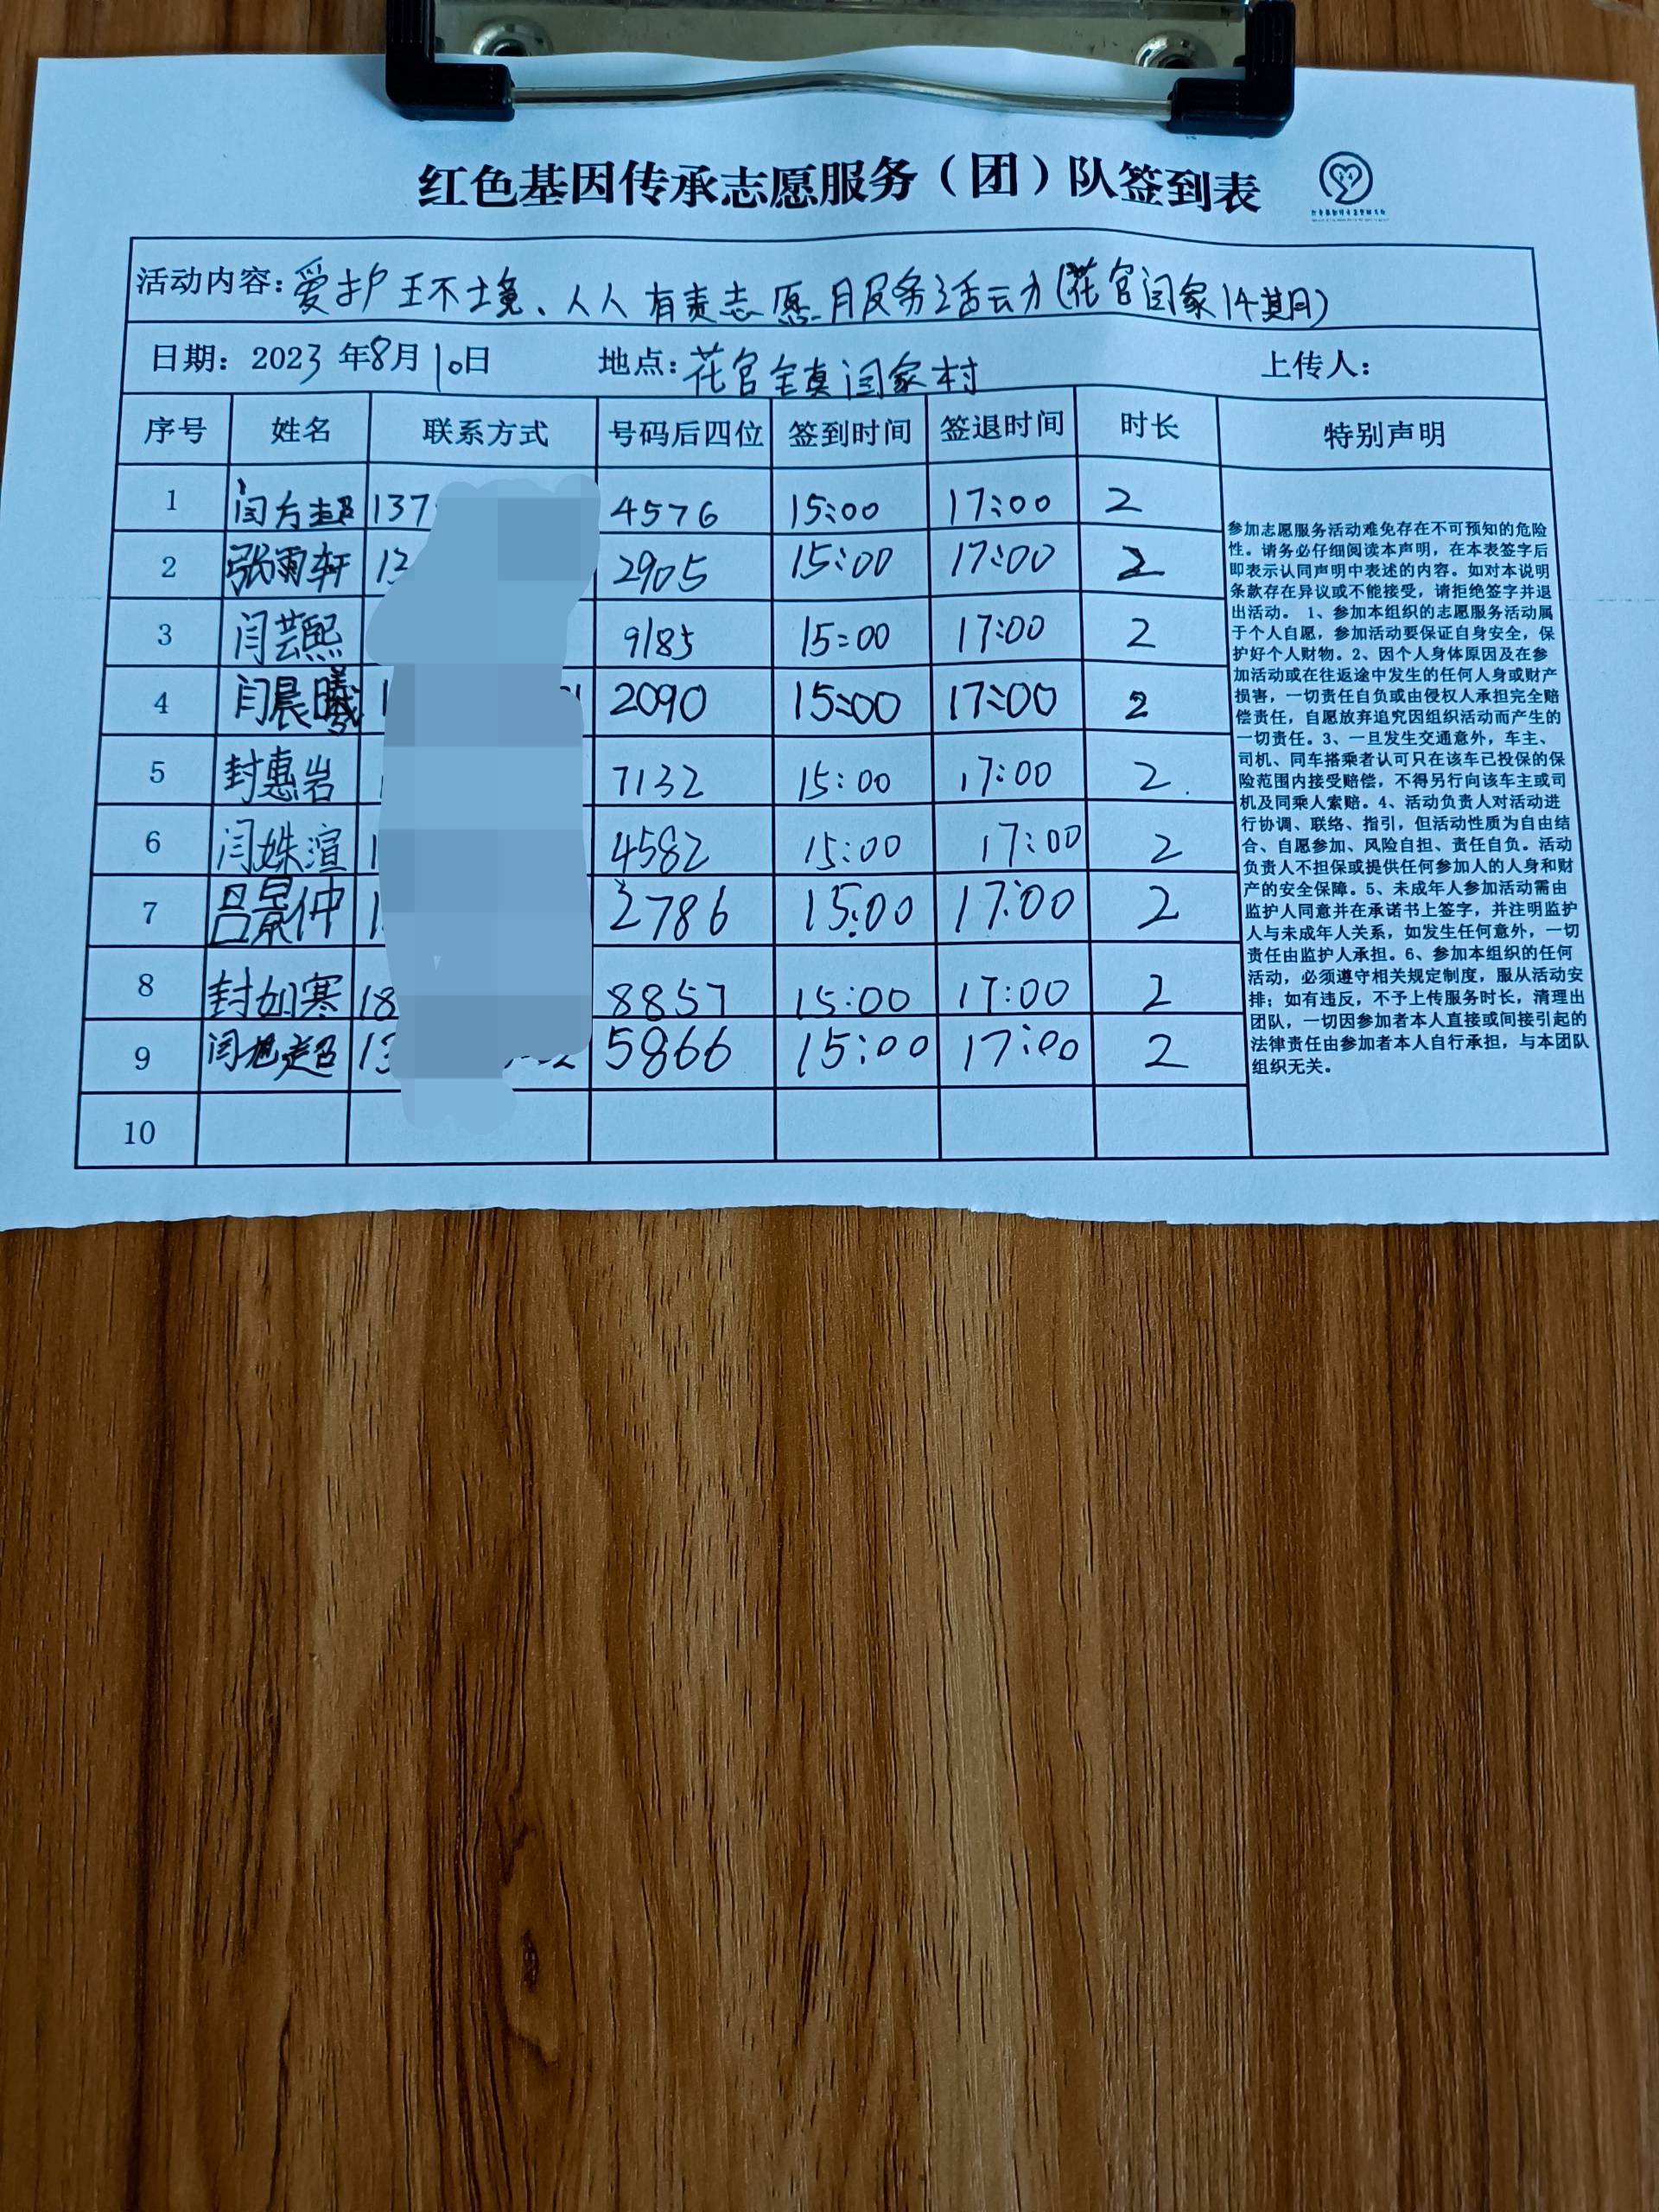 红色基因传承志愿服务（团）队签到表
活动内容：爱护环境、人人有责志愿服务活动（花官闫家14期）
日期：2023年8月10日 地点：花官镇闫家村 上传人：
序号 姓名 联系方式 号码后四位 签到时间 签退时间 时长 特别声明
1 闫方超 137 4576 15:00 17:00 2
2 张雨轩 13 2905 15:00 17:00 2
3 闫芸熙 9185 15:00 17:00 2
4 闫晨曦 1 2090 15:00 17:00 2
5 封惠岩 1 7132 15:00 17:00 2
6 闫姝渲 1 4582 15:00 17:00 2
7 吕景仲 1 2786 15:00 17:00 2
8 封如寒 18 8857 15:00 17:00 2
9 闫旭超 13 5866 15:00 17:00 2
10
参加志愿服务活动难免存在不可预知的危险
性。请务必仔细阅读本声明，在本表签字后
即表示认同声明中表述的内容。如对本说明
条款存在异议或不能接受，请拒绝签字并退
出活动。 1、参加本组织的志愿服务活动属
于个人自愿，参加活动要保证自身安全，保
护好个人财物。2、因个人身体原因及在参
加活动或在往返途中发生的任何人身或财产
损害，一切责任自负或由侵权人承担完全赔
偿责任，自愿放弃追究因组织活动而产生的
一切责任。3、一旦发生交通意外，车主、
司机、同车搭乘者认可只在该车已投保的保
险范围内接受赔偿，不得另行向该车主或司
机及同乘人索赔。4、活动负责人对活动进
行协调、联络、指引，但活动性质为自由结
合、自愿参加、风险自担、责任自负。活动
负责人不担保或提供任何参加人的人身和财
产的安全保障。5、未成年人参加活动需由
监护人同意并在承诺书上签字，并注明监护
人与未成年人关系，如发生任何意外，一切
责任由监护人承担。6、参加本组织的任何
活动，必须遵守相关规定制度，服从活动安
排；如有违反，不予上传服务时长，清理出
团队，一切因参加者本人直接或间接引起的
法律责任由参加者本人自行承担，与本团队
组织无关。